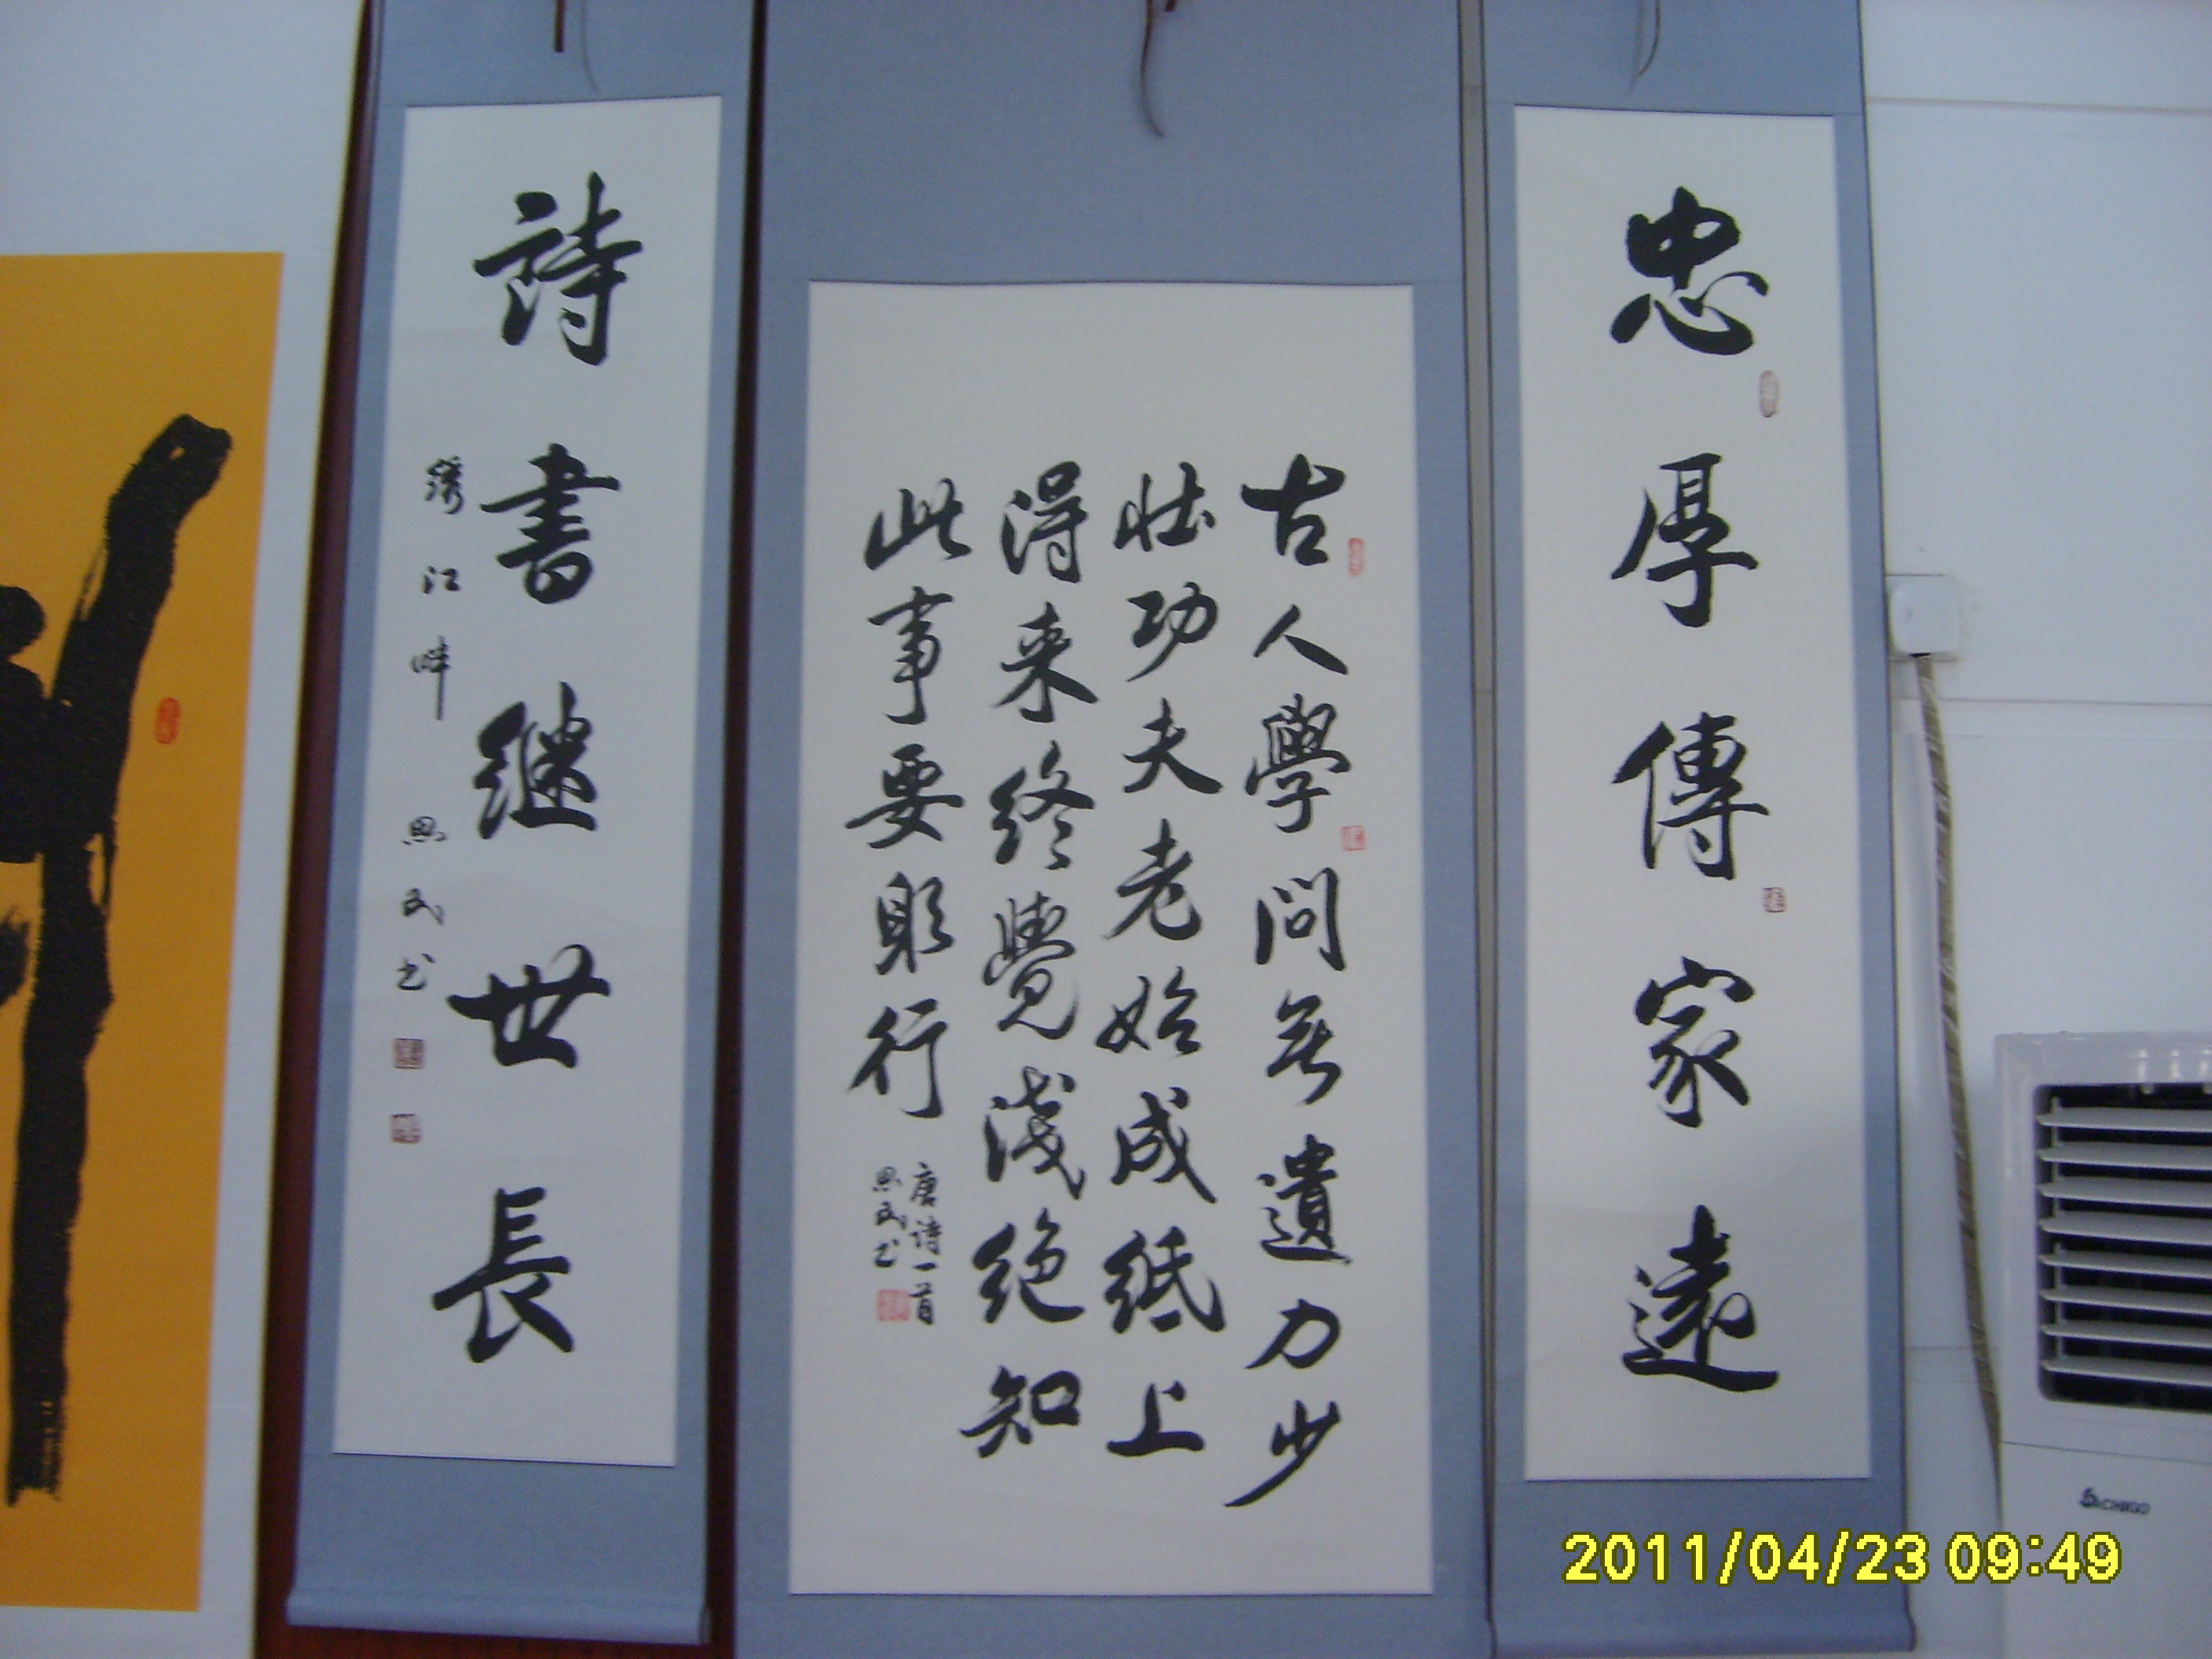 忠厚傳家遠
古人學問无遺力少
壮功夫老始成纸上
得来终覺淺绝知
此事要躬行
唐诗一首
思民书
詩書继世長
绣江畔 思民书
CHIGO
2011/04/23 09:49